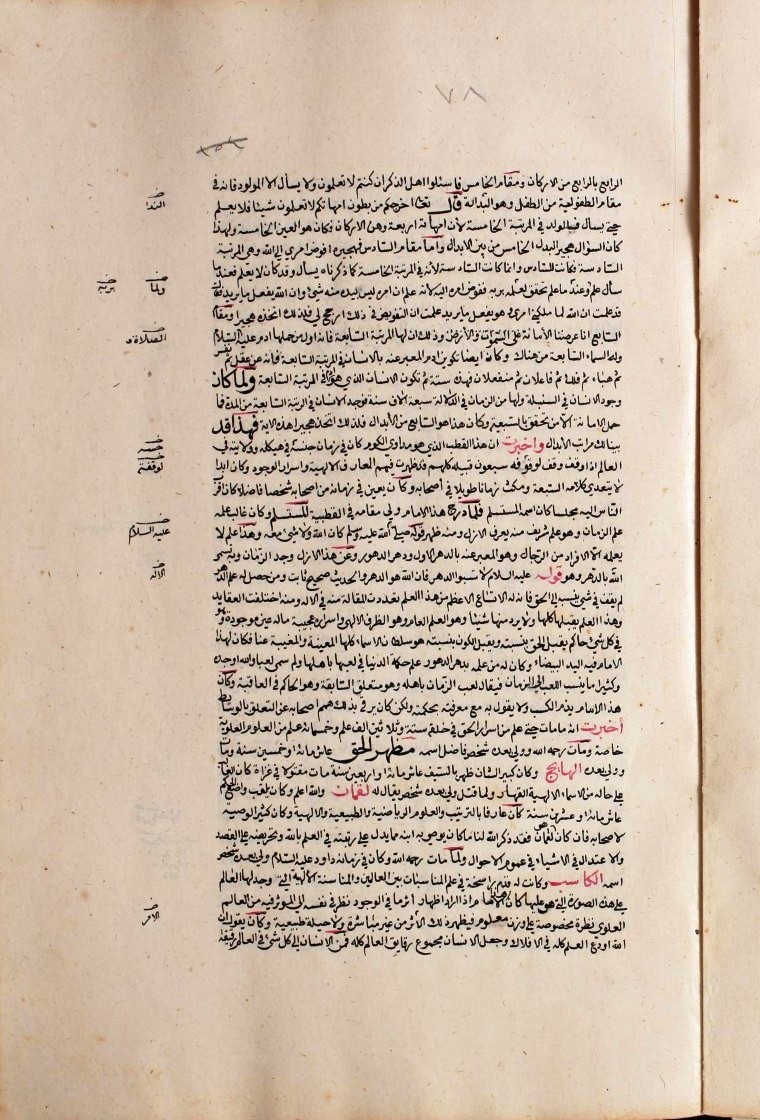 ٧٨
الرابع بالرابع من الاركان ومقام الخامس فاسئلوا اهل الذكر ان كنتم لا تعلمون ولا يسأل الا المولود فانه في
مقام الطفولية من الطفل وهو النداء قال تعالى اخرجكم من بطون امهاتكم لا تعلمون شيئا فلا يعلم
حتى يسأل فالولد في المرتبة الخامسة لأن امهاته اربعة وهن الاركان فكان هو العين الخامسة ولهذا
كان السؤال هجير البدل الخامس من بين الابدال واما مقام السادس فهجيره افوض امري الى الله وهي المرتبة
السادسة فكانت للسادس وانما كانت السادسة لأنه في المرتبة الخامسة كما ذكرناه يسأل وقد كان لا يعلم فعندما
سأل علم وعندما علم تحقق بعلمه بربه ففوض امره اليه لانه علم ان امره ليس بيده منه شئ وان الله يفعل ما يريد فقال
قد علمت ان الله لما ملكني امري هو يفعل ما يريد علمت ان التفويض في ذلك ارجح لي فلذلك اتخذه هجيرا ومقام
السابع انا عرضنا الأمانة على السموات والأرض وذلك ان لها المرتبة السابعة فانه اول من حملها ادم عليه السلام
وله السماء السابعة من هناك وكان ايضا تكوين ادم المعبر عنه بالانسان في المرتبة السابعة فانه عن عقل ثم نفس
ثم هباء ثم فلك ثم فاعلان ثم منفعلان فهذه ستة ثم تكون الانسان الذي هو ادم في المرتبة السابعة ولما كان
وجود الانسان في السنبلة ولها من الزمان في الدلالة سبعة الاف سنة فوجد الانسان في الرتبة السابعة من المدة فما
حمل الامانة الا من تحقق بالسبعية وكان هذا هو السابع من الأبدال فلذلك اتخذ هجيراه هذه الاية فهذا قد
بينا لك مراتب الأبدال واخبرت ان هذا القطب الذي هو مداوي الكلوم كان في زمان حبسه في هيكله وولايته في
العالم اذا وقف وقف لوقوفه سبعون قبيلة كلهم قد ظهرت فيهم المعارف الالهية واسرار الوجود وكان ابدا
لا يتعدى كلامه السبعة ومكث زمانا طويلا في أصحابه وكان يعين في زمانه من اصحابه شخصا فاضلا كان اقرب
الناس اليه مجلسا كان اسمه المستسلم فلما درج هذا الامام ولي مقامه في القطبية المستسلم وكان غالب علمه
علم الزمان وهو علم شريف منه يعرف الازل ومنه ظهر قوله صلى الله عليه وسلم كان الله ولا شئ معه وهذا علم لا
يعلمه الا الافراد من الرجال وهو المعبر عنه بالدهر الاول ودهر الدهور وعن هذا الازل وجد الزمان وبه تسمى
الله بالدهر وهو قوله عليه السلام لا تسبوا الدهر فان الله هو الدهر والحديث صحيح ثابت ومن حصل له علم الدهر
لم يقف في شئ ينسبه الى الحق فان له الاتساع الاعظم ومن هذا العلم تعددت المقالة منه في الاله ومنه اختلفت العقايد
وهذا العلم يقبلها كلها ولا يرد منها شيئا وهو العلم العام وهو الظرف الالهي واسراره عجيبة ماله عين موجودة وهو
في كل شئ حاكم يقبل الحق بنسبته ويقبل الكون بنسبته هو سلطان الاسماء كلها المعينة والمغيبة عنا فكان لهذا
الامام فيه اليد البيضاء وكان له من علمه بدهر الدهور علم حكمة الدنيا في لعبها باهلها ولم سمي لعبا والله اوجده
وكثيرا ما ينسب اللعب الى الزمان فيقال لعب الزمان باهله وهو متعلق السابقة وهو الحاكم في العاقبة وكان
هذا الامام يذم الكسب ولا يقول به مع معرفته بحكمته ولكن كان يرقي بذلك همم اصحابه عن التعلق بالوسايط
أخبرت انه ما مات حتى علم من اسرار الحق في خلقه ستة وثلاثين الف علم وخمسمائة علم من العلوم العلوية
خاصة ومات رحمه الله وولي بعده شخص فاضل اسمه مظهر الحق عاش مائة وخمسين سنة ومات
وولي بعده الهايج وكان كبير الشان ظهر بالسيف عاش مائة واربعين سنة مات مقتولا في غزاة كان الغالب
على حاله من الاسماء الالهية القهار ولما قتل ولي بعده شخص يقال له لقمان والله اعلم وكان يلقب واضع الحكم
عاش مائة وعشرين سنة كان عارفا بالترتيب والعلوم الرياضية والطبيعية والالهية وكان كثير الوصية
لاصحابه فان كان هو لقمان فقد ذكر الله لنا ما كان يوصي به ابنه مما يدل على رتبته في العلم بالله وتحريضه على القصد
والاعتدال في الاشياء في عموم الاحوال ولما مات رحمه الله وكان في زمانه داود عليه السلام ولي بعده شخص
اسمه الكاسب وكانت له قدم راسخة في علم المناسبات بين العالمين والمناسبة الالهية التي وجد لها العالم
على هذه الصورة التي هو عليها كان هذا الامام اذا اراد اظهار اثر ما في الوجود نظر في نفسه الى المؤثر فيه من العالم
العلوي نظرة مخصوصة على وزن معلوم فيظهر ذلك الأثر من غير مباشرة ولا حيلة طبيعية وكان يقول ان
الله اودع العلم كله في الافلاك وجعل الانسان مجموع رقايق العالم كله فمن الانسان الى كل شئ في العالم رقيقة
النداء
ولما
بربه
الصلاة و
خمسه
لوقفته
عليه السلام
الاله
الامر